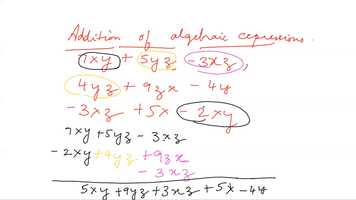 Addition of algebraic expressions.
7xy + 5yz - 3xz,
4yz + 9zx - 4y
- 3xz + 5x - 2xy
7xy + 5yz - 3xz
- 2xy + 4yz + 9zx
- 3xz
5xy + 9yz + 3xz + 5x - 4y